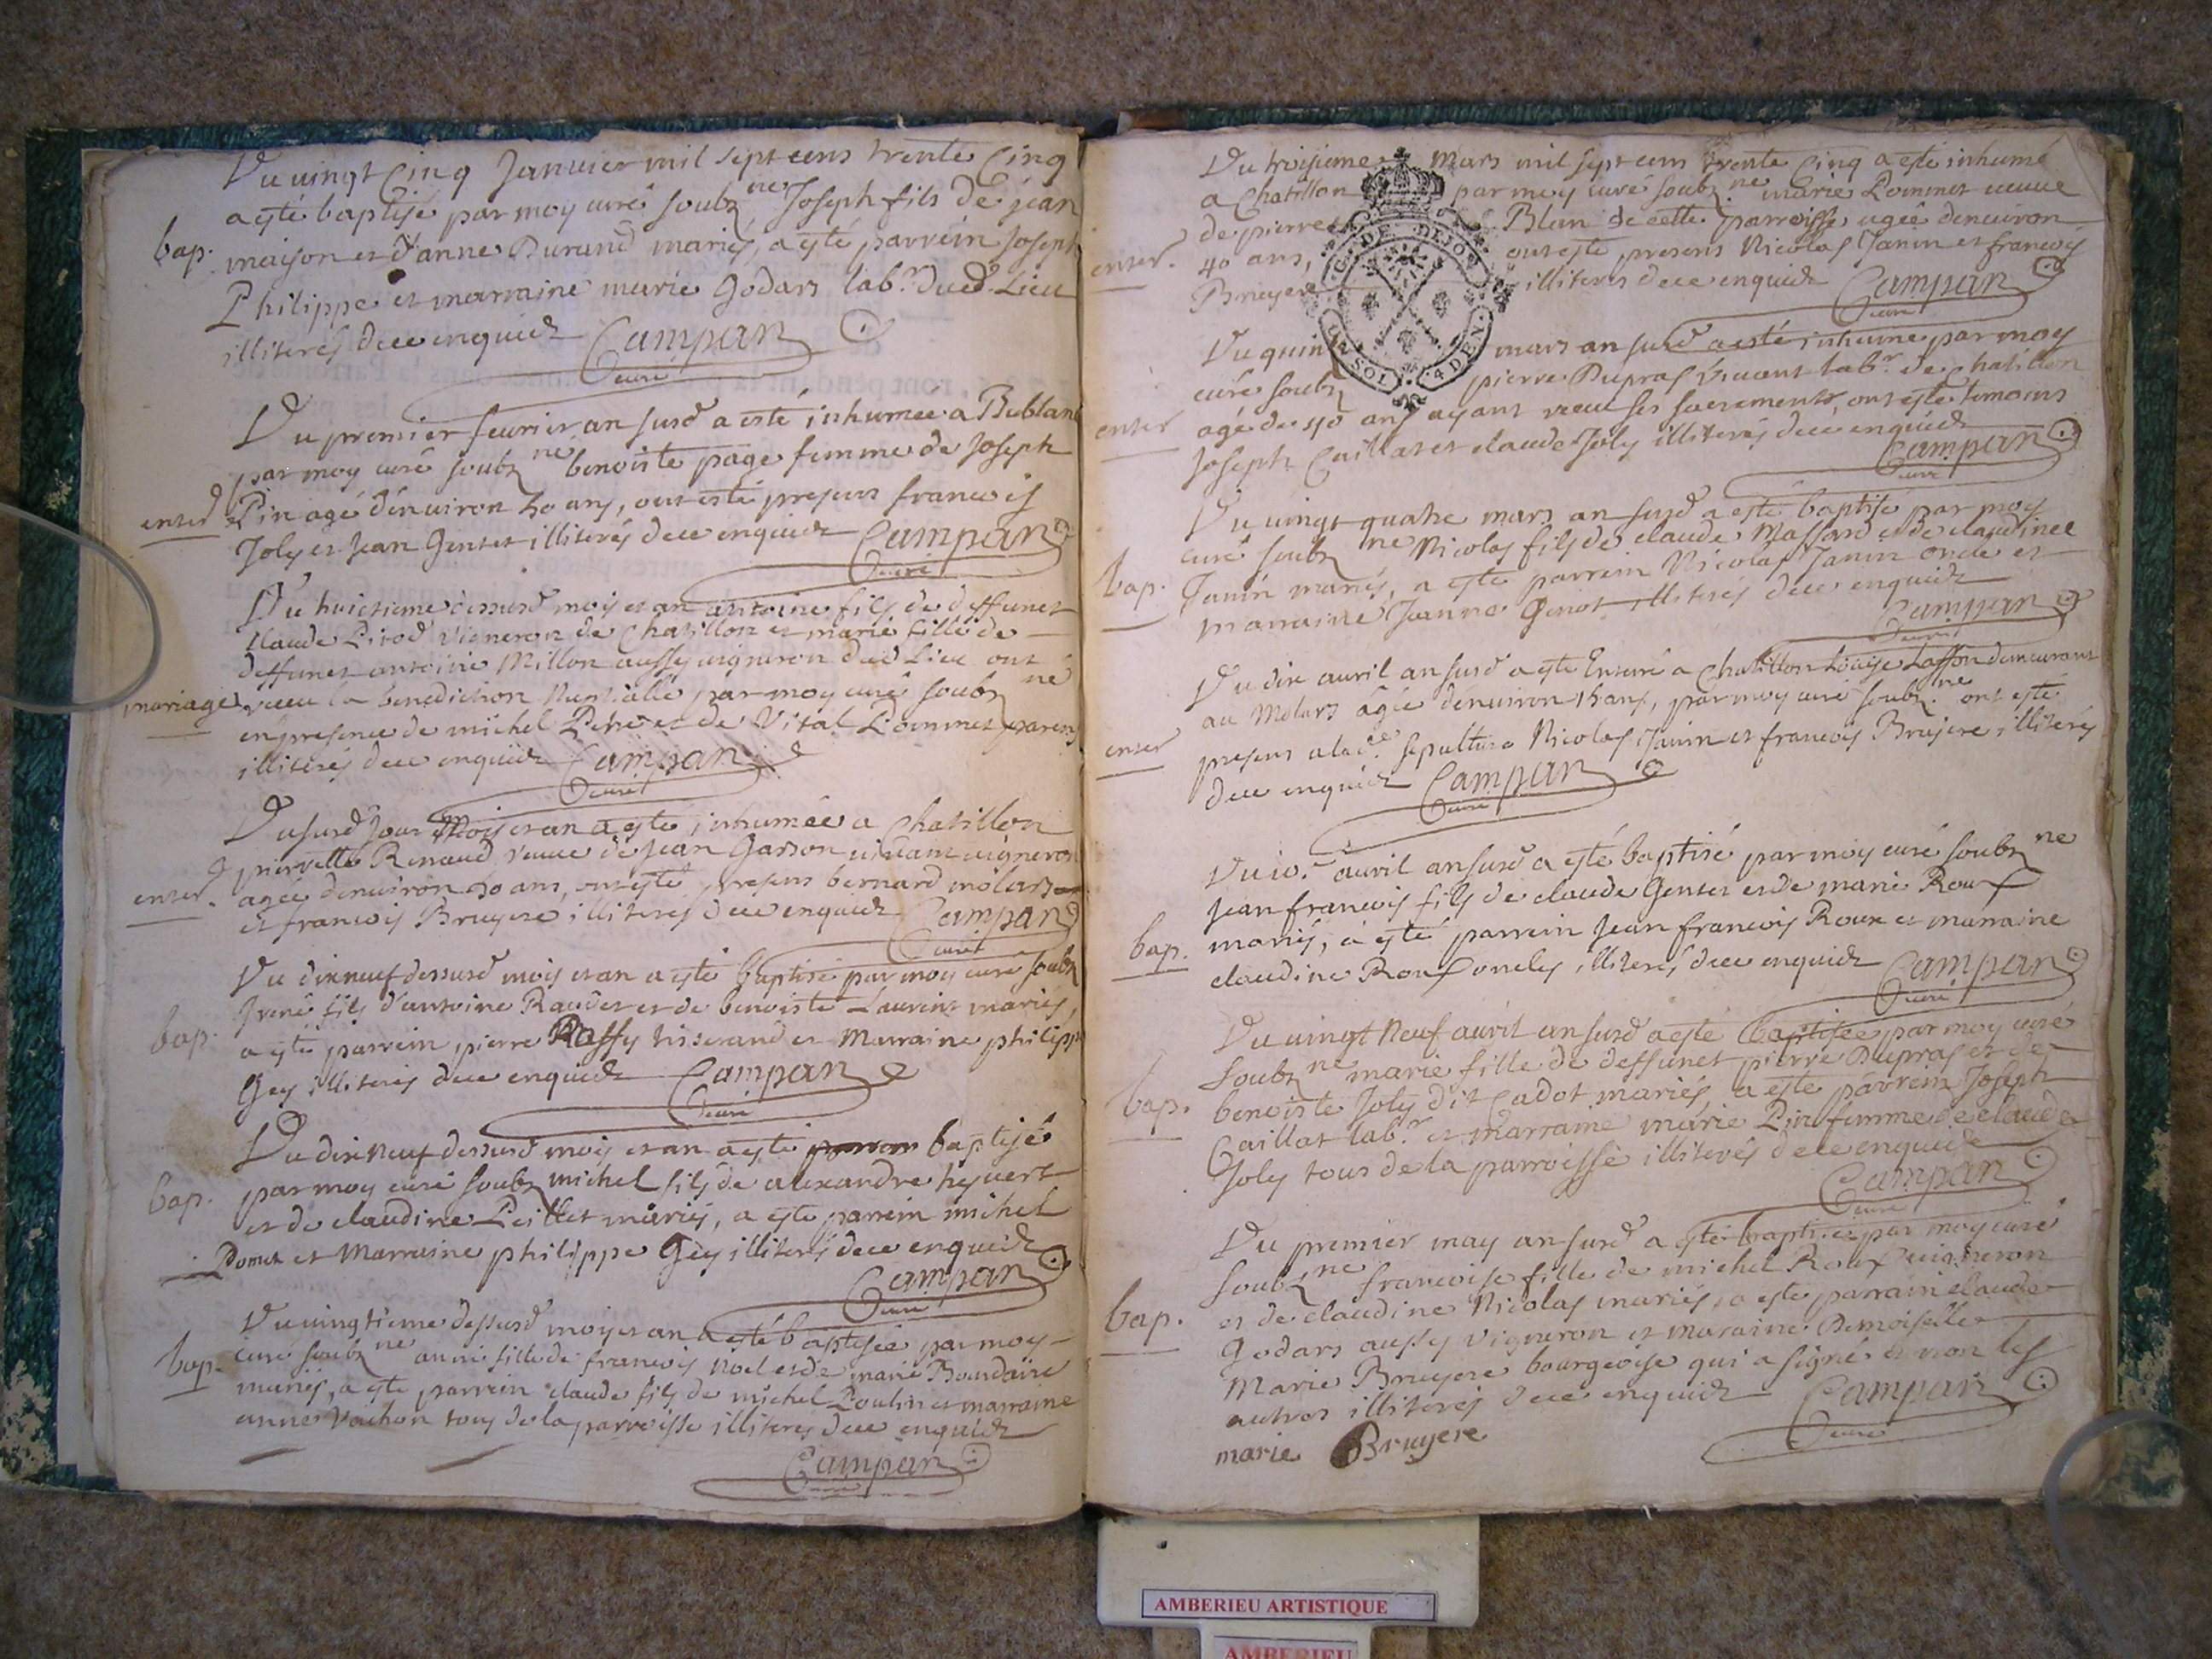 Du vingt Cinq Janvier mil sept cens trente Cinq
a esté baptisé par moy curé soubz.né Joseph fils de jean
bap. maison et d'anne Durand mariés, a esté parrein Joseph
Philippe et marraine marie Godars lab.r dud. Lieu
illiterés dece enquid
Campan
curé
Du premier feurier an susd a esté inhumée a Bublane
par moy curé soubz né benoiste page femme de Joseph
enter Pin agé dénuiron ans, ont esté presens francois
Joly et jean Genset illiterés dece enquid Campan
Curé
Du huictieme dessusd mois et an antoine fils de deffunct
Claude Pirod Vigneron de Chatillon et marie fille de
deffunct antoine Millon aussy uigneron dud Lieu ont
mariage receu la benediction Nuptialle par moy curé soubz né
en presence de michel et de Vital Pommet parens
illiterés dece enquid Campan
curé
Du susd Jour Mois et an a esté inhumée a Chatillon
pierrette Renaud veuue de jean Garson uiuant uigneron
enter. agée denuiron ans, ont esté presens bernard molars
et francois Bruyere illiterés dece enquid Campan
curé
Du dixneuf dessusd mois et an a esté baptisé par moy curé soubz
bap. Irené fils d'antoine Raudet et de benoiste Laurent mariés,
a esté parrein pierre Raffy tisserand et Marraine philippe
Gey illiterés dece enquid Campan
curé
Du dixneuf dessusd mois et an a esté baptisé
bap. par moy curé soubz michel fils de alexandre heyuert
et de claudine Peillet mariés, a esté parrein michel
Pomet et Marraine philippe Gey illiterés dece enquid
Campan
Curé
Du uingtieme dessusd mois et an a esté baptisée par moy
bap. curé soubz né anne fille de francois Noel et de marie Bourdaine
mariés, a esté parrein claude fils de michel Poulin et marraine
anne Vachon tous de la parroisse illiterés dece enquid
Campan
Curé
Du troisieme mars mil sept cens trente Cinq a esté inhumé
a Chatillon par moy curé soubz.né marie Pommet ueuue
de pierre Blan de cette parroisse agée denuiron
enter. 40 ans, ont esté presens Nicolas Janin et francois
Bruyere illiterés dece enquid Campan
curé
G. DE DIJON
SOL 4 DEN.
Du quin mars an susd a esté inhumé par moy
curé soubz pierre Dupras Viuant lab.r de chatillon
enter agé de 40 ans ayant receu ses sacrements, ont esté temoins
Joseph Caillat et claude Joly illiterés dece enquid
Campan
curé
Du uingt quatre mars an susd a esté baptisé par moy
curé soubz né Nicolas fils de claude Massard et de claudine
bap. Janin mariés, a esté parrein Nicolas Janin oncle et
marraine Jeanne Genot illiterés dece enquid
Campan
curé
Du dix auril an susd a esté Enteré a Chatillon Louise Lasson demeurant
au Molars agée dénuiron 15 ans, par moy curé soubz.né ont esté
enter presens a lad.e sepulture Nicolas Janin et francois Bruyere illiterés
dece enquid Campan
curé
Du 10.e auril an susd a esté baptisé par moy curé soubz né
jean francois fils de claude Genset et de marie Roux
bap. mariés, a esté parrein Jean francois Roux et marraine
claudine Roux oncles illiterés dece enquid
Campan
curé
Du uingt Neuf auril an susd a esté baptisée par moy curé
soubz né marie fille de deffunct pierre Dupras et de
bap. benoiste Joly dit Cadot mariés, a esté parrein Joseph
Caillat lab.r et marraine marie Pin femme de claude
Joly tous de la parroisse illiterés dece enquid
Campan
Curé
Du premier may an susd a esté baptisée par moy curé
soubz né francoise fille de michel Roux uigneron
bap. et de claudine Nicolas mariés, a esté parrain claude
Godars aussy Vigneron et maraine Demoiselle
Marie Bruyere bourgeoise qui a signé et non les
autres illiterés dece enquid Campan
curé
marie Bruyere
AMBERIEU ARTISTIQUE
AMBERIEU